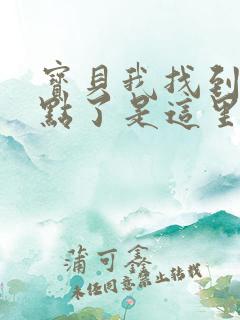 寶貝我找到
點了是這里
蒲可鑫
未经同意禁止转载